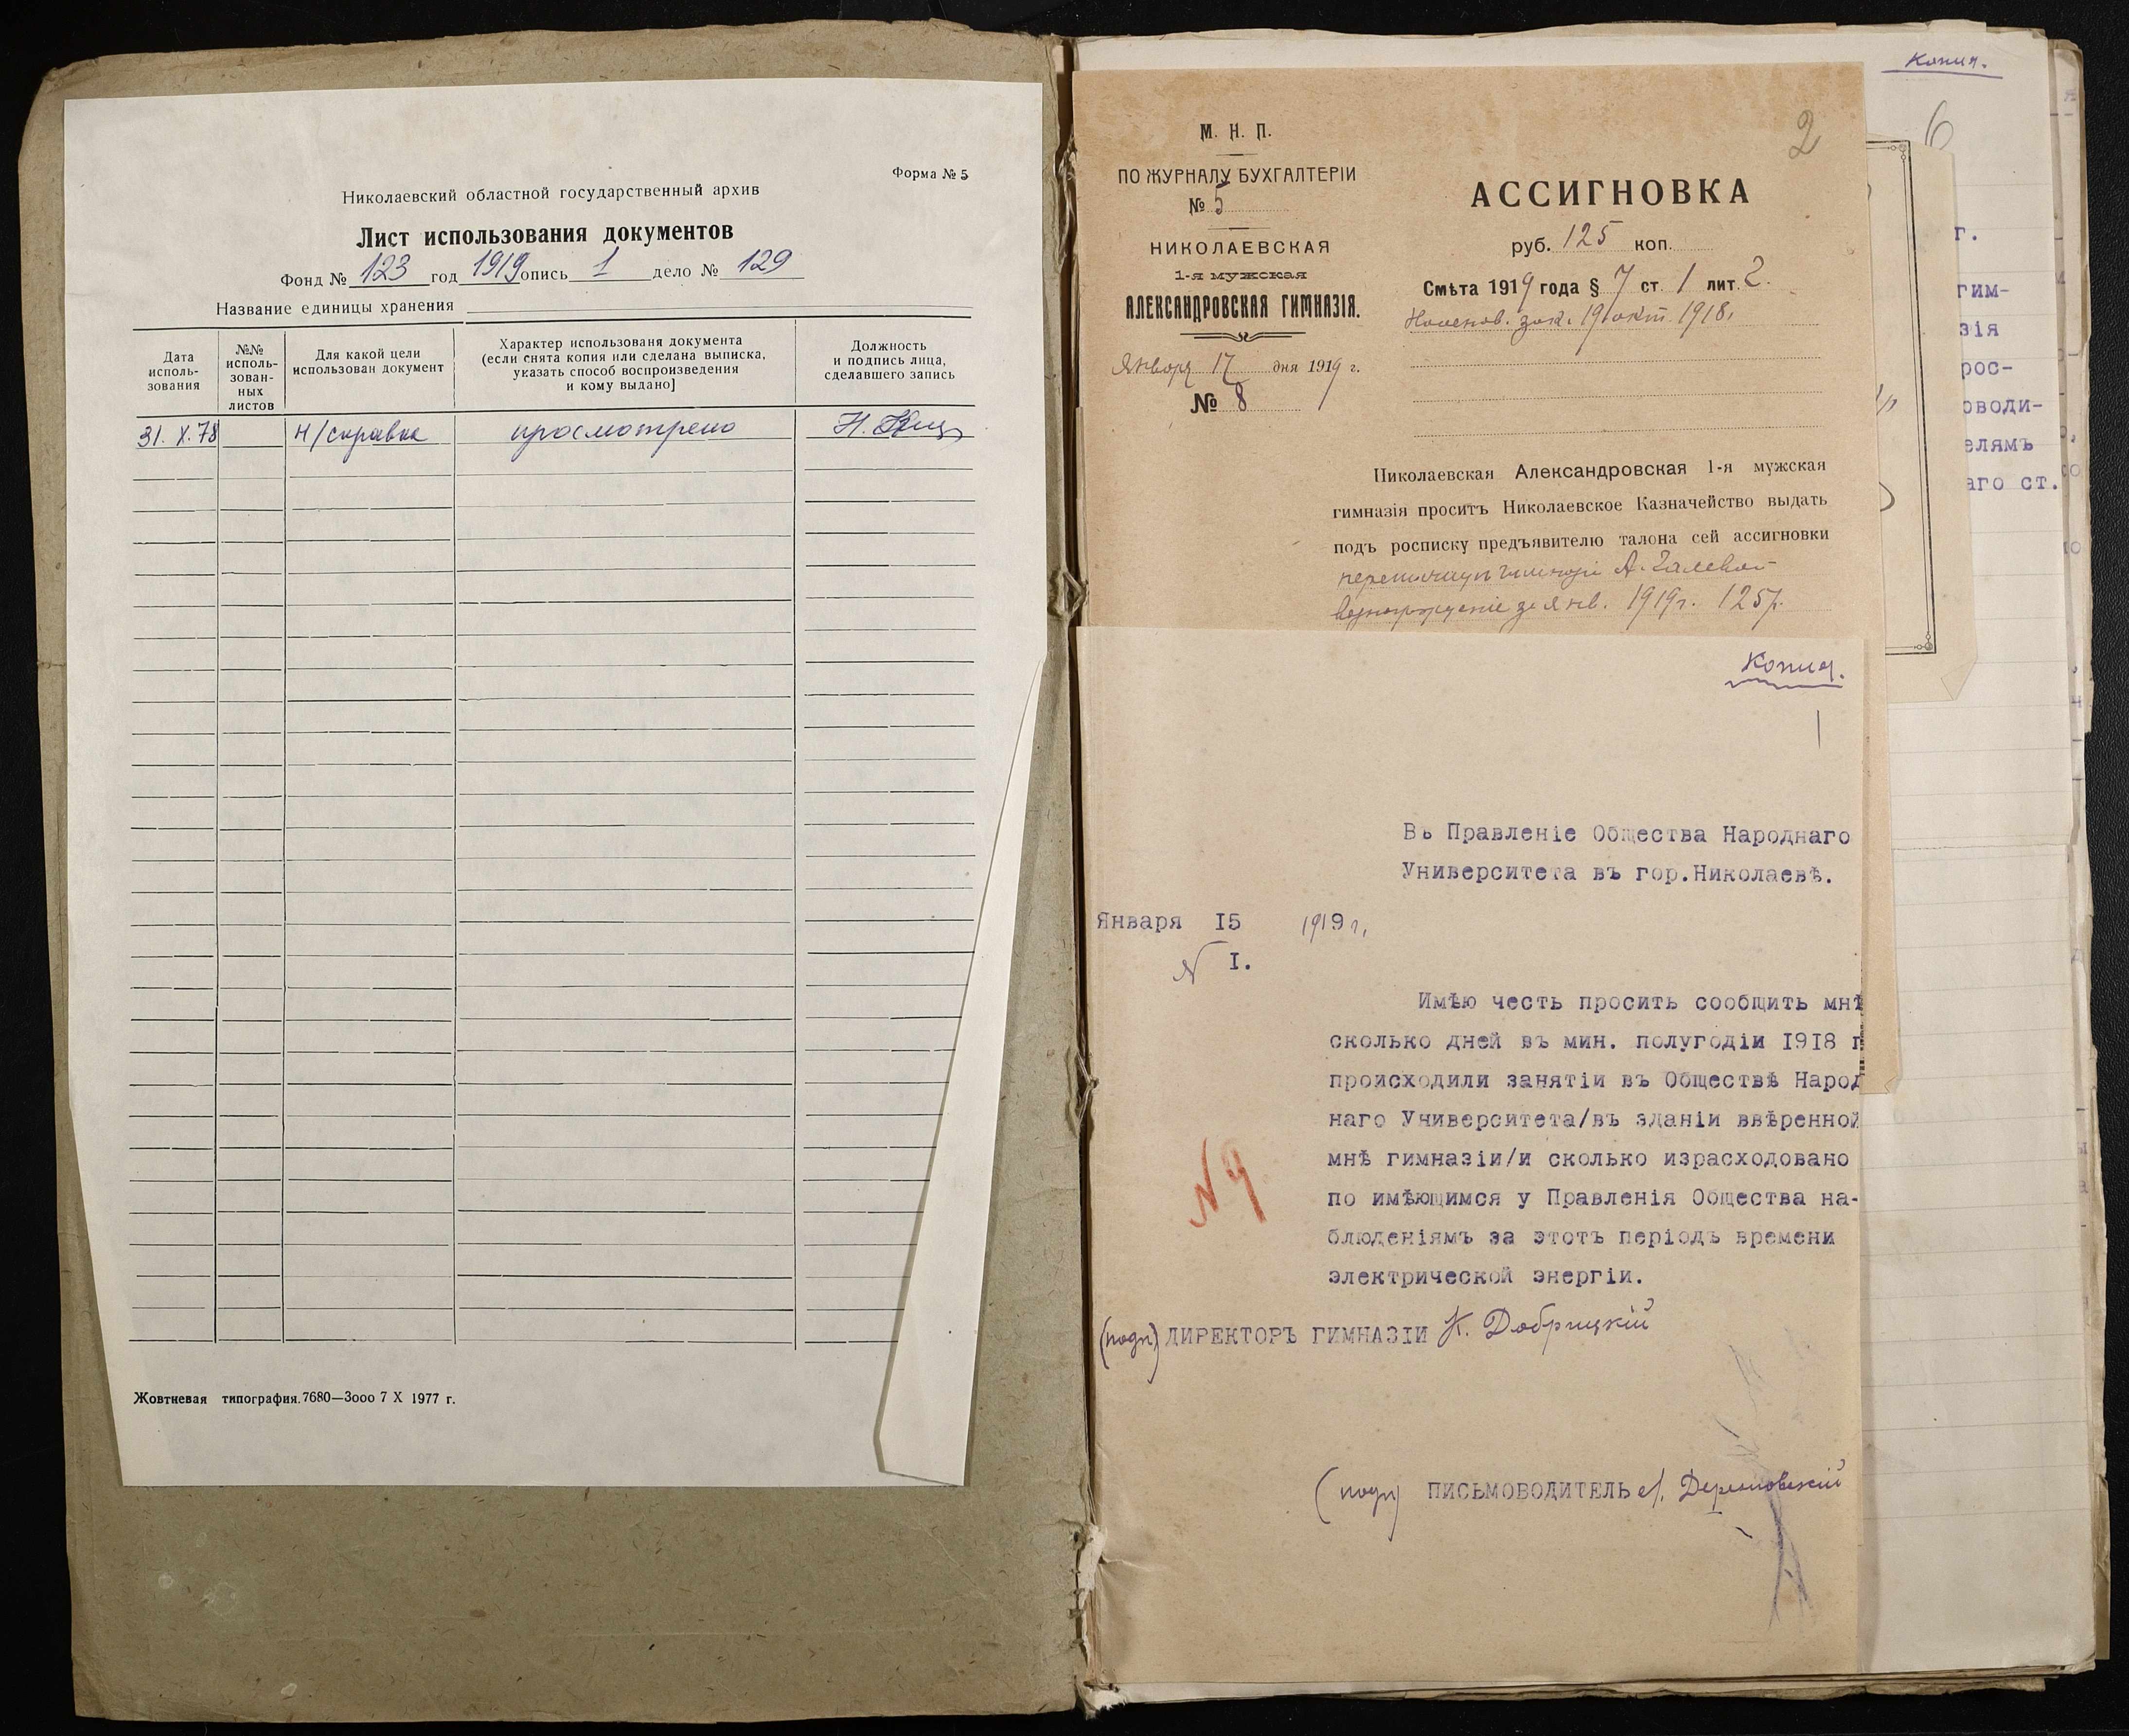 Форма № 5
Николаевский областной государственный архив
Лист использования документов
Фонд № 123 год 1919 опись 1 дело № 129
Название единицы хранения
Дата исполь-зования
№№ исполь-зован-ных листов
Для какой цели использован документ
Характер использованя документа (если снята копия или сделана выписка, указать способ воспроизведения и кому выдано]
Должность и подпись лица, сделавшего запись
31.X.78 н/справка просмотрено Н.
Жовтневая типография. 7680—3ооо 7 X 1977 г.
Копия.
6
2
М. Н. П.
ПО ЖУРНАЛУ БУХГАЛТЕРІИ
№ 5
НИКОЛАЕВСКАЯ
1-я мужская
АЛЕКСАНДРОВСКАЯ ГИМНАЗІЯ.
Января 17 дня 1919 г.
№ 8
АССИГНОВКА
руб. 125 коп.
Смѣта 1919 года § 7 ст. 1 лит. 2.
зак. 19 окт. 1918.
Николаевская Александровская 1-я мужская
гимназія проситъ Николаевское Казначейство выдать
подъ росписку предъявителю талона сей ассигновки
А.
за янв. 1919г. 125р.
г.
гим-
зія
рос-
оводи-
елямъ
аго ст.
Копия.
1
Въ Правленіе Общества Народнаго
Университета въ гор.Николаевѣ.
Января I5 1919 г.
N I.
Имѣю честь просить сообщить мнѣ
сколько дней въ мин. полугодіи I9I8 г
происходили занятіи въ Обществѣ Народ
наго Университета/въ зданіи ввѣренной
мнѣ гимназіи/и сколько израсходовано
по имѣющимся у Правленія Общества на-
блюденіямъ за этотъ періодъ времени
электрической энергіи.
N 9
(подп) ДИРЕКТОРЪ ГИМНАЗІИ К. Добрицкій
(подп) ПИСЬМОВОДИТЕЛЬ